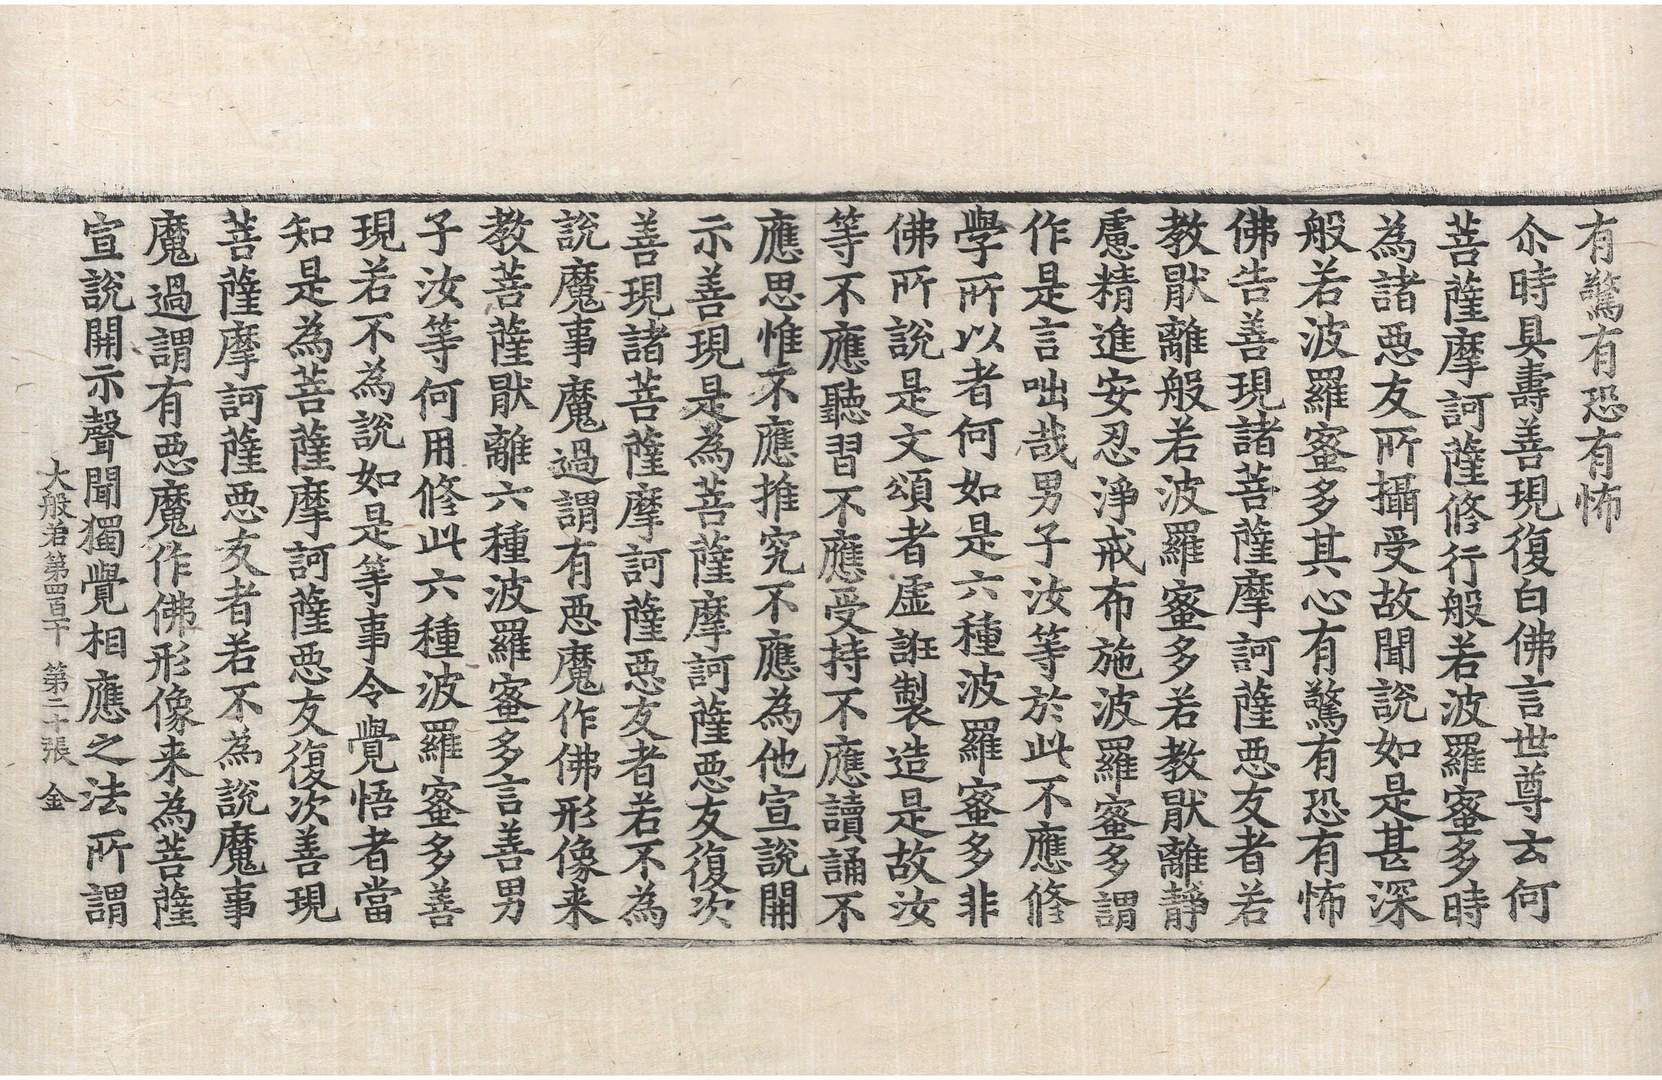 有驚有恐有怖
尒時具壽善現復白佛言世尊云何
菩薩摩訶薩修行般若波羅蜜多時
為諸悪友所攝受故聞說如是甚深
般若波羅蜜多其心有驚有恐有怖
佛告善現諸菩薩摩訶薩悪友者若
教猒離般若波羅蜜多若教猒離靜
慮精進安忍淨戒布施波羅蜜多謂
作是言咄㢤男子汝等於此不應修
學所以者何如是六種波羅蜜多非
佛所說是文頌者虛誑製造是故汝
等不應聽習不應受持不應讀誦不
應思惟不應推究不應為他宣說開
示善現是為菩薩摩訶薩悪友復次
善現諸菩薩摩訶薩悪友者若不為
說魔事魔過謂有悪魔作佛形像来
教菩薩猒離六種波羅蜜多言善男
子汝等何用修此六種波羅蜜多善
現若不為說如是等事令覺悟者當
知是為菩薩摩訶薩悪友復次善現
菩薩摩訶薩悪友者若不為說魔事
魔過謂有悪魔作佛形像来為菩薩
宣說開示聲聞獨覺相應之法所謂
大般若第四百十 第二十張 金